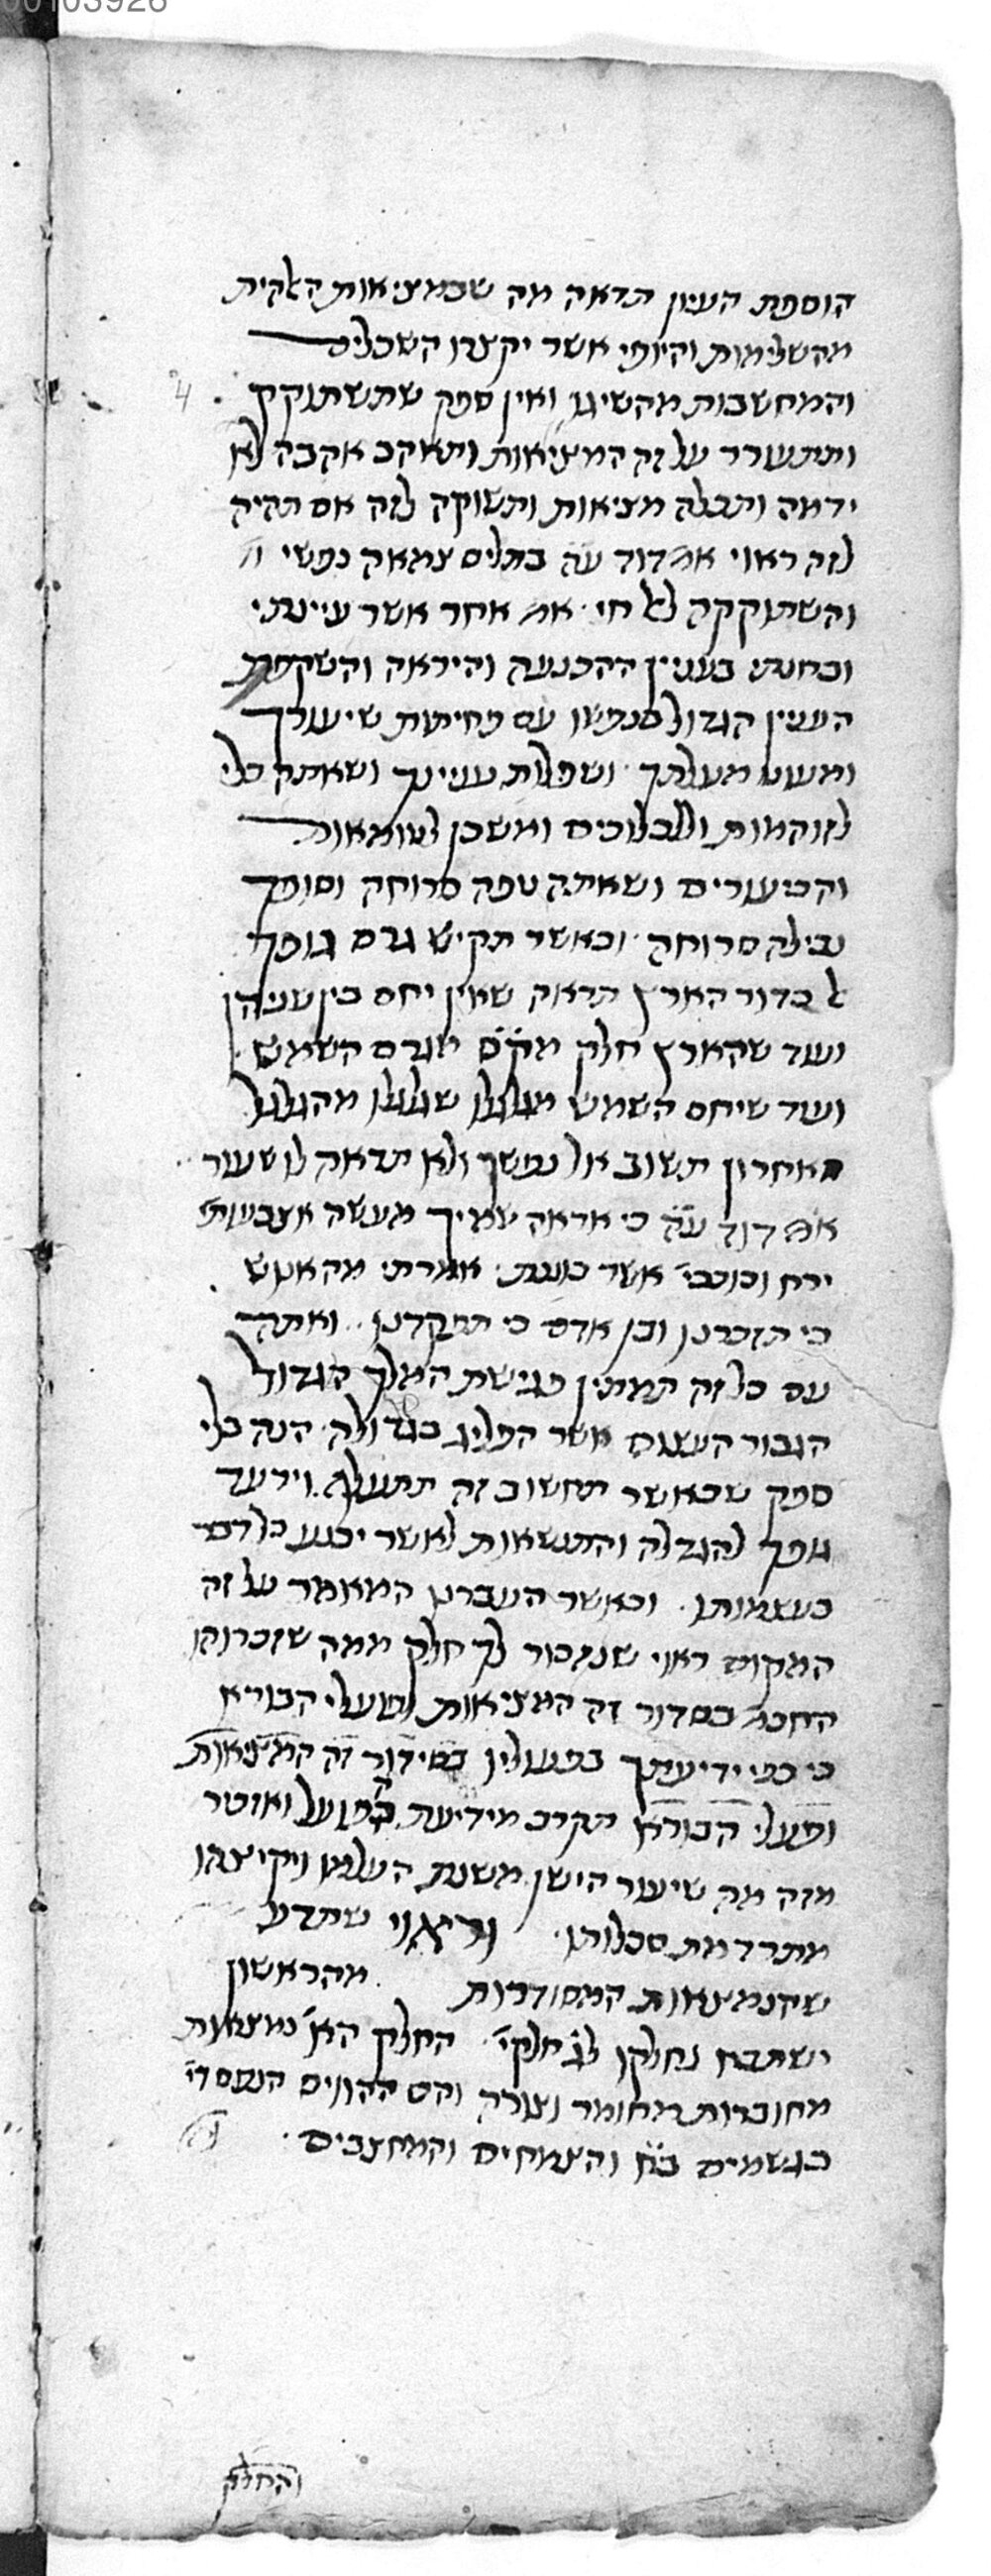 00103926
הוספת העיון תראה מה שבמציאות האלהית
מהשלימות והיופי אשר יקצרו השכלים
והמחשבות מהשיגו ואין ספק שתשתוקק
ותתעורר על זה המציאות ותאהב אהבה לא
ידמה ותבלה מציאות ותשוקה לזה אם תהיה
לזה ראוי אמ' דוד ע"ה בתלים צמאה נפשי וג'
והשתוקקה לאל חי אמ' אחר אשר עיינתי
ובחנתי בענין ההכנעה והיראה והשקפת
הענין הגדול בנפשו עם פחיתות שיעורך
ומעוט מעלתך ושפלות עניינך ושאתה כלי
לזוהמות ולכלוכים ומשכן לטומאות
והכיעורים ושאתה טפה סרוחה וסופך
נבילה סרוחה וכאשר תקיש גרם גופך
אל כדור הארץ תראה שאין יחס בין שניהן
ועד שהארץ חלק מק"ס מגרם השמש
ועד שיחס השמש מגלגלו שגלגלו מהגלגל
האחרון תשוב אל נפשך ולא תראה לו שעור
אמ' דוד ע"ה כי אראה שמיך מעשה אצבעותי'
ירח וכוכבי' אשר כוננת אמרתי מה אנוש
כי תזכרנו ובן אדם כי תפקדנו ואתה
עם כל זה תמתין פגישת המלך הגדול
הגבור העצום אשר הפליג בגדולה הנה בלי
ספק שכאשר תחשוב זה תתעלף וירעד
גופך להגדלה והתנשאות לאשר יכנע כל רם
בעצמותו וכאשר העברנו המאמר על זה
המקום ראוי שנזכור לך חלק ממה שזכרוהו
החכמ' בסדור זה המציאות ופועלי הבורא
כי כפי ידיעתך בפעוליו בסידור זה המציאות
ופעלי הבורא תקרב מידיעת הפועל ואוטר
מזה מה שיעור הישן משנת העלמו ויקיצהו
מתרדמת סכלותו וראוי שתדע
שהנמצאות המסודרות מהראשון
ישתבח נחלקו לג' חלקי' החלק הא' נמצאות
מחוברות מחומר וצורה והם ההווים הנפסדי'
כגשמים ב"ח והצמחים והמחצבים
והחלק